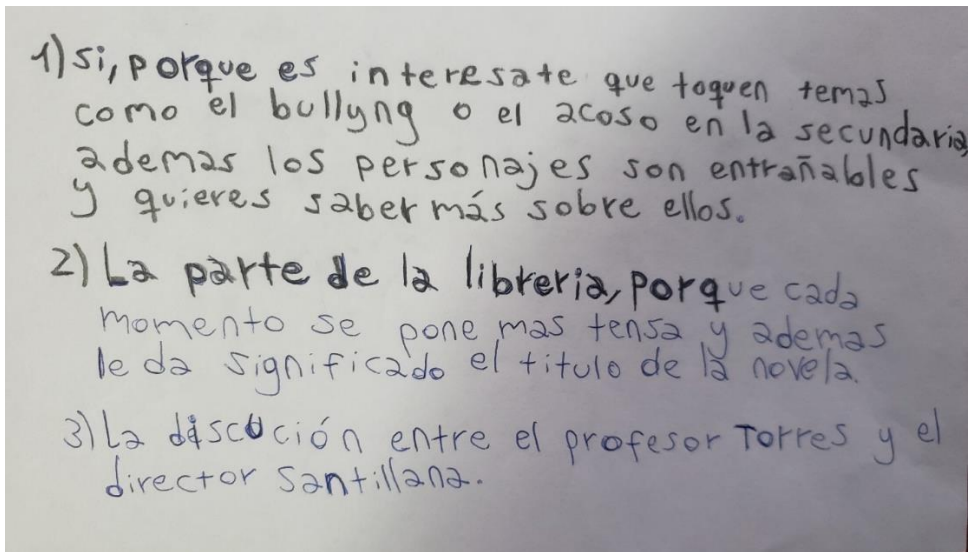 1) si, porque es interesate que toquen temas
como el bullyng o el acoso en la secundaria,
ademas los personajes son entrañables
y quieres saber más sobre ellos.
2) La parte de la libreria, porque cada
momento se pone mas tensa y ademas
le da significado el titulo de la novela.
3) La discución entre el profesor Torres y el
director Santillana.